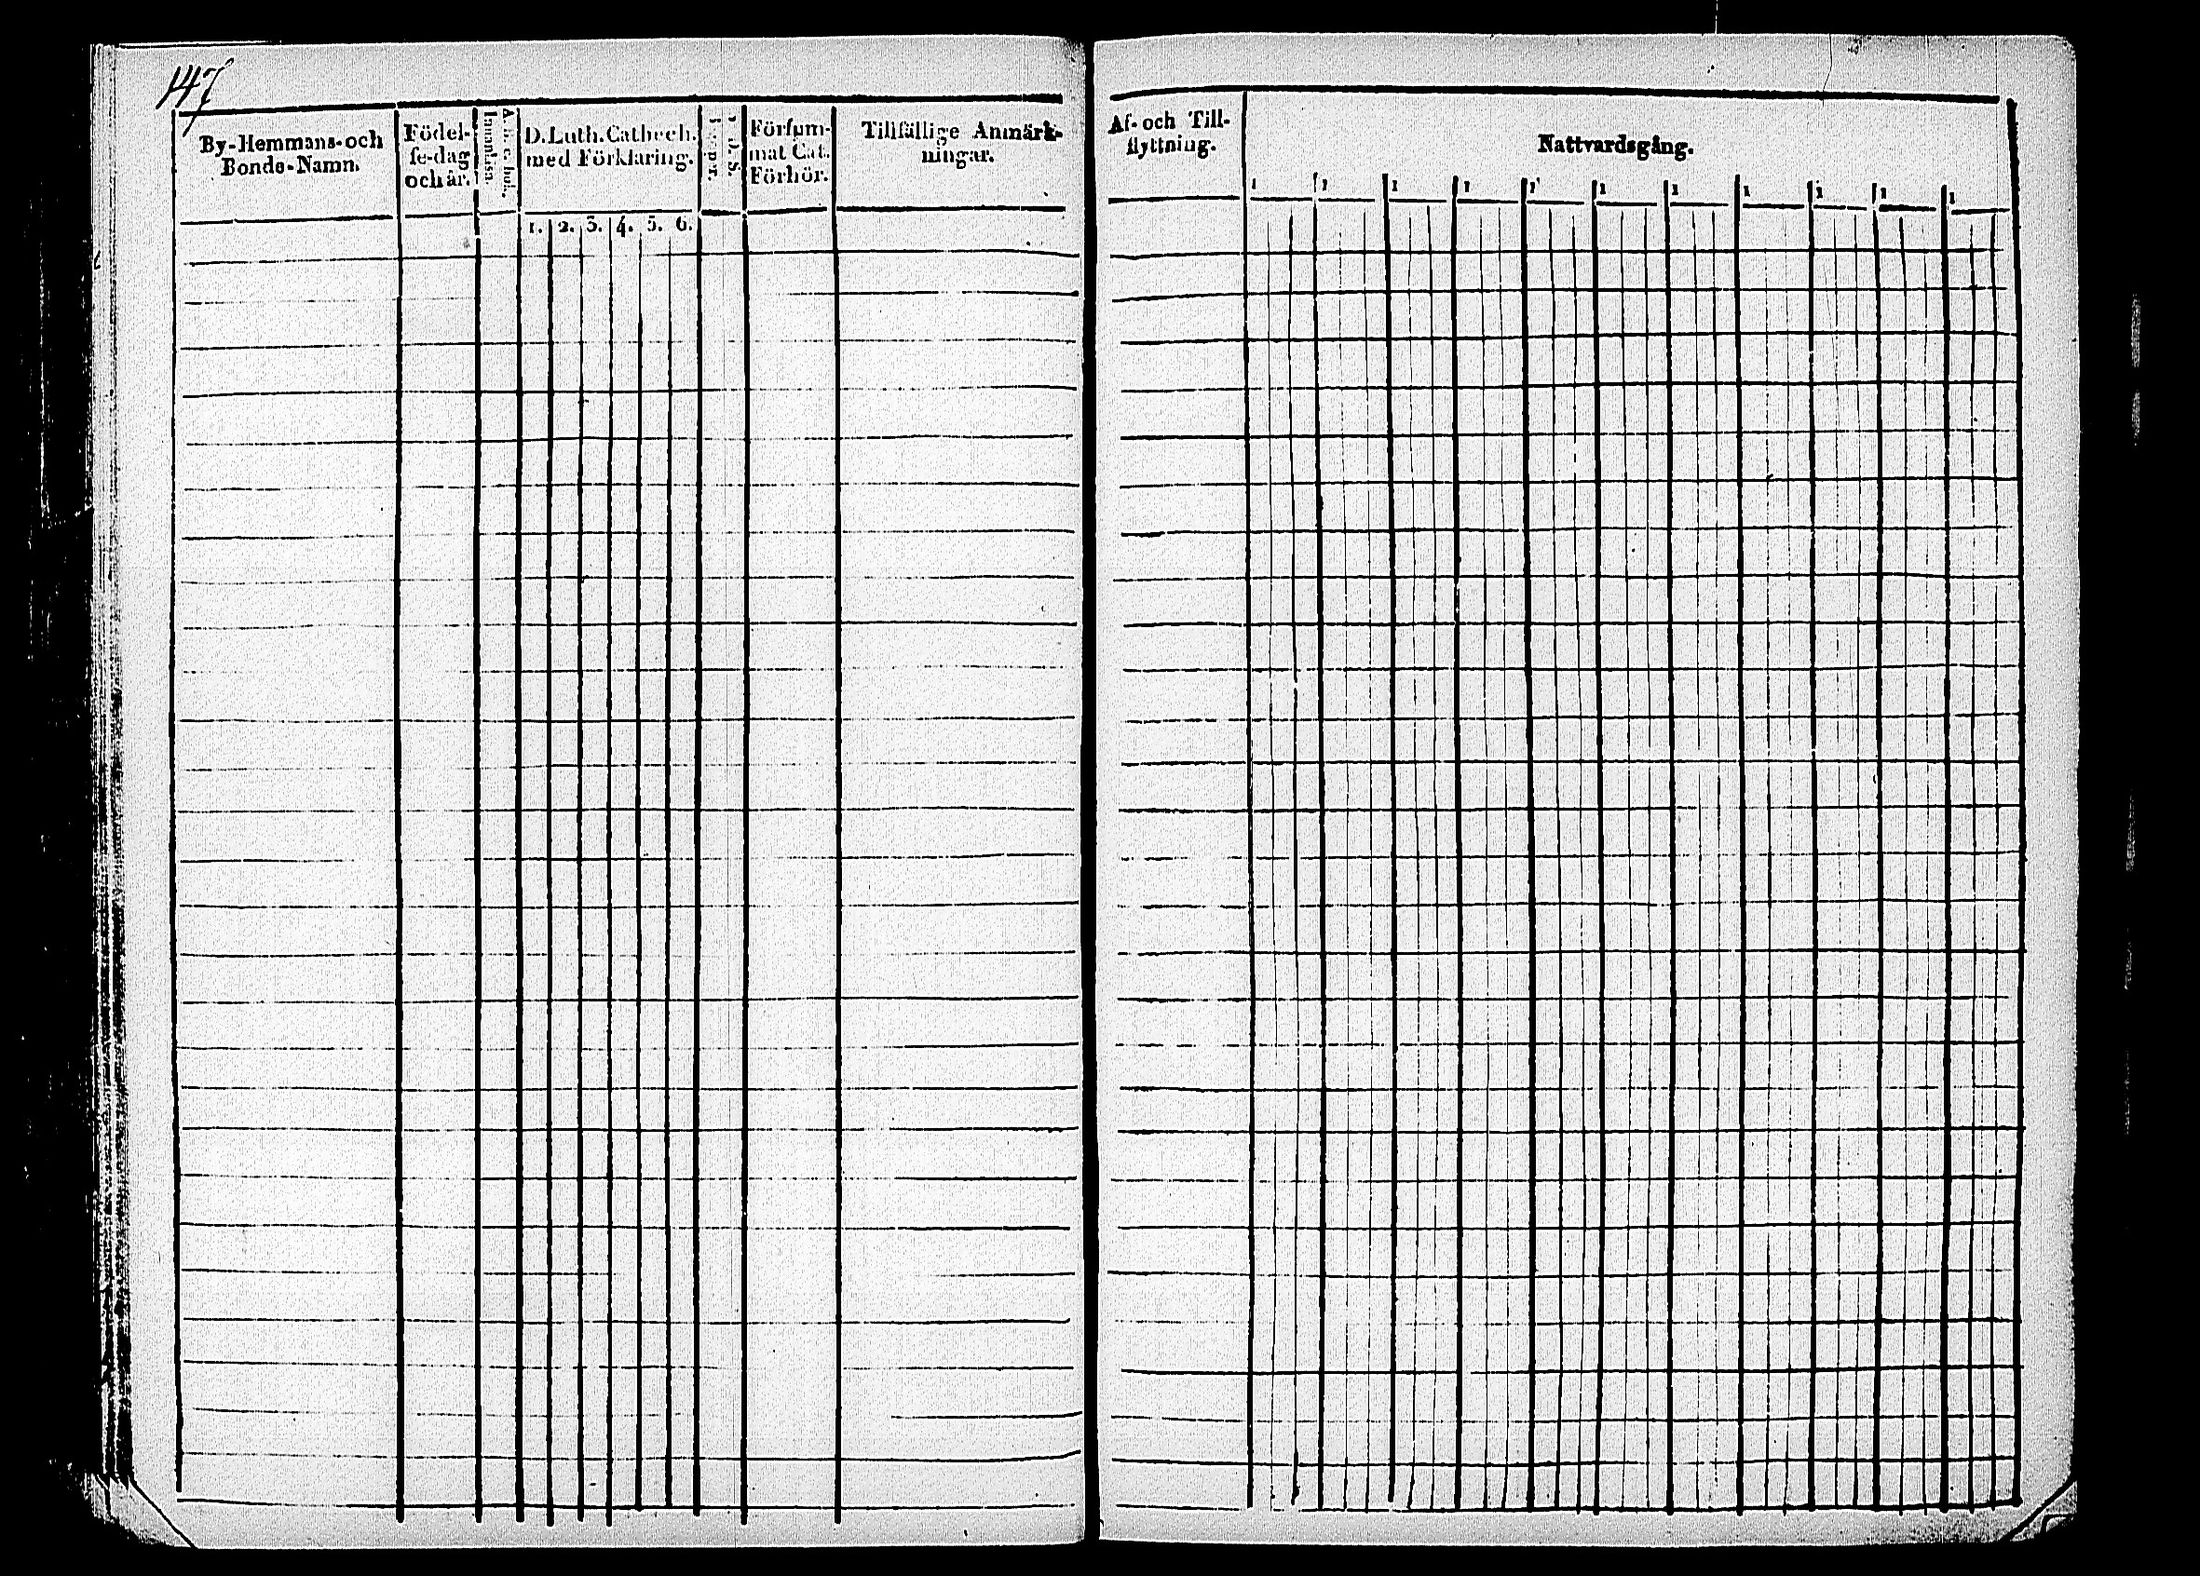 147
By-Hemmans- och
Bonde-Namn.
Födel-
se-dag
och år.
Innanläsn.
D. Luth. Cathech.
med Förklaring.
1. 2. 3. 4. 5. 6.
Försum-
mat Cat.
Förhör.
Tillfällige Anmärk-
ningar.
Af- och Till-
flyttning.
Nattvardsgång.
1 1 1 1 1 1 1 1 1 1 1